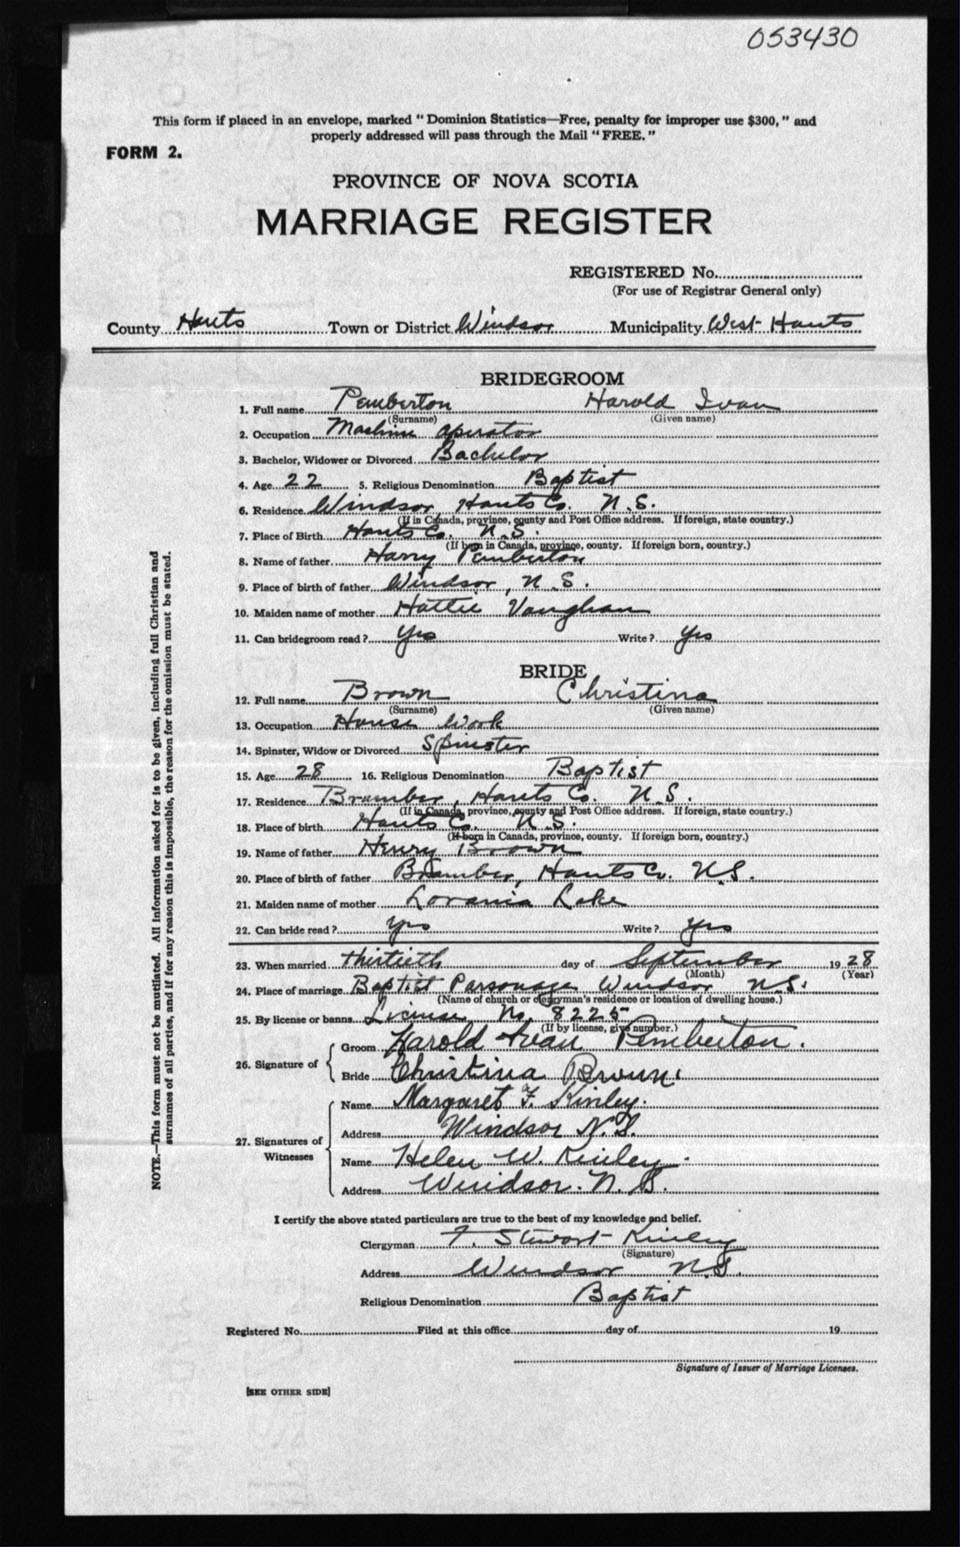 053430
This form if placed in an envelope, marked " Dominion Statistics—Free, penalty for improper use $300, " and
properly addressed will pass through the Mail " FREE. "
FORM 2.
PROVINCE OF NOVA SCOTIA
MARRIAGE REGISTER
REGISTERED No.
(For use of Registrar General only)
County Hants Town or District Windsor Municipality West Hants
BRIDEGROOM
1. Full name Pemberton Harold Ivan
(Surname) (Given name)
2. Occupation Machine operator
3. Bachelor, Widower or Divorced Bachelor
4. Age 22 5. Religious Denomination Baptist
6. Residence Windsor, Hants Co. N.S.
(If in Canada, province, county and Post Office address. If foreign, state country.)
7. Place of Birth Hants Co. N.S.
(If born in Canada, province, county. If foreign born, country.)
8. Name of father Harry Pemberton
9. Place of birth of father Windsor, N.S.
10. Maiden name of mother Hattie Vaughan
11. Can bridegroom read? Yes Write? Yes
BRIDE
12. Full name Brown Christina
(Surname) (Given name)
13. Occupation House Work
14. Spinster, Widow or Divorced Spinster
15. Age 28 16. Religious Denomination Baptist
17. Residence Bramber, Hants Co. N.S.
(If in Canada, province, county and Post Office address. If foreign, state country.)
18. Place of birth Hants Co. N.S.
(If born in Canada, province, county. If foreign born, country.)
19. Name of father Henry Brown
20. Place of birth of father Bramber, Hants Co. N.S.
21. Maiden name of mother Lake
22. Can bride read? Yes Write? Yes
23. When married thirtieth day of September 1928
(Month) (Year)
24. Place of marriage Baptist Parsonage Windsor N.S.
(Name of church or clergyman's residence or location of dwelling house.)
25. By license or banns License No. 8225
(If by license, give number.)
26. Signature of
Groom Harold Ivan Pemberton.
Bride Christina Brown.
27. Signatures of Witnesses
Name Margaret F. Kinley.
Address Windsor N.S.
Name Helen W. Kinley.
Address Windsor. N.S.
I certify the above stated particulars are true to the best of my knowledge and belief.
Clergyman F. Stewart Kinley
(Signature)
Address Windsor N.S.
Religious Denomination Baptist
Registered No. Filed at this office day of 19
Signature of Issuer of Marriage Licenses.
[SEE OTHER SIDE]
NOTE.—This form must not be mutilated. All information asked for is to be given, including full Christian and
surnames of all parties, and if for any reason this is impossible, the reason for the omission must be stated.